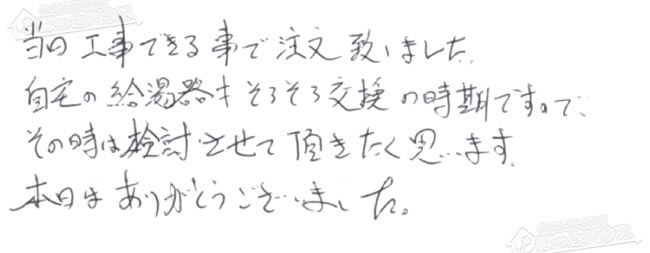 当日工事できる事で注文致しました。
自宅の給湯器もそろそろ交換の時期ですので、
その時は検討させて頂きたく思います。
本日はありがとうございました。